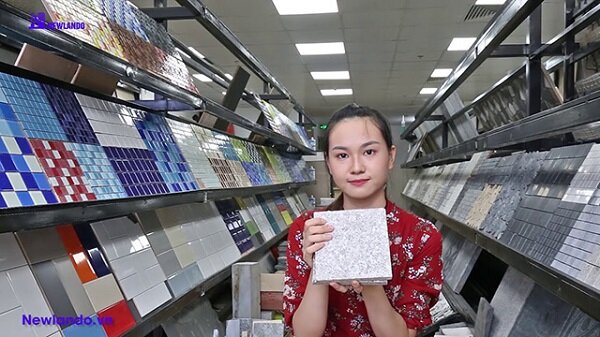 NEWLANDO
Newlando.vn